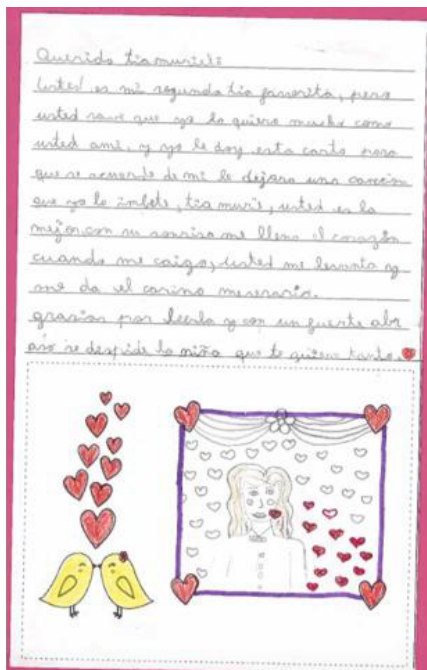 Querida tia muriel:
Usted es mi segunda tia favorita, pero
usted save que yo la quiero mucho como
usted ami, y yo le doy esta carta para
que se acuerde de mi le dejara una cancion
que yo la imbete, tia muri, usted es la
mejor, con su sonrisa me llena el corazón
cuando me caigo, usted me levanta y
me da el carino nesesario.
grasias por leerla y con un fuerte abr
aso se despide la niña que te quiere tanto.